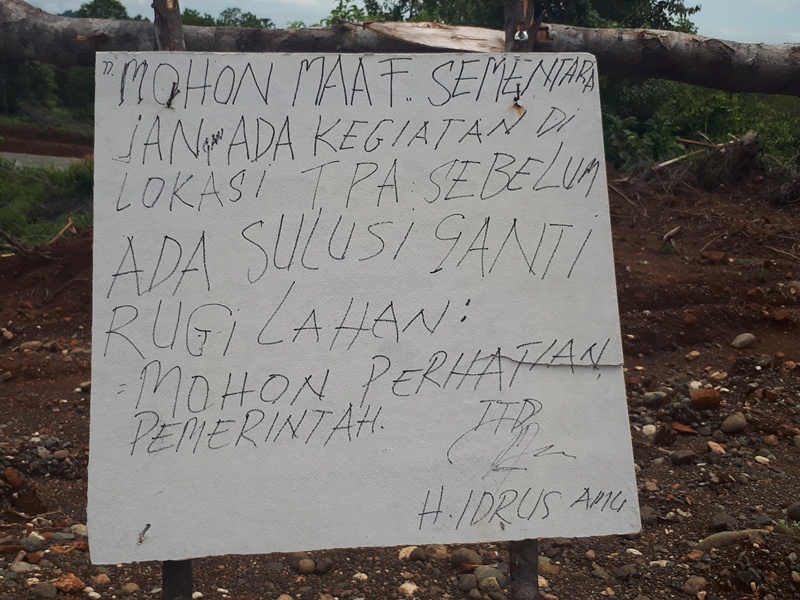 " MOHON MAAF.. SEMENTARA
JANGAN ADA KEGIATAN Di
LOKASi TPA. SEBELUM
ADA SULUSi GANTi
RUGi LAHAN:
= MOHON PERHATIAN
PEMERINTAH.
TTD
H. IDRUS AMU